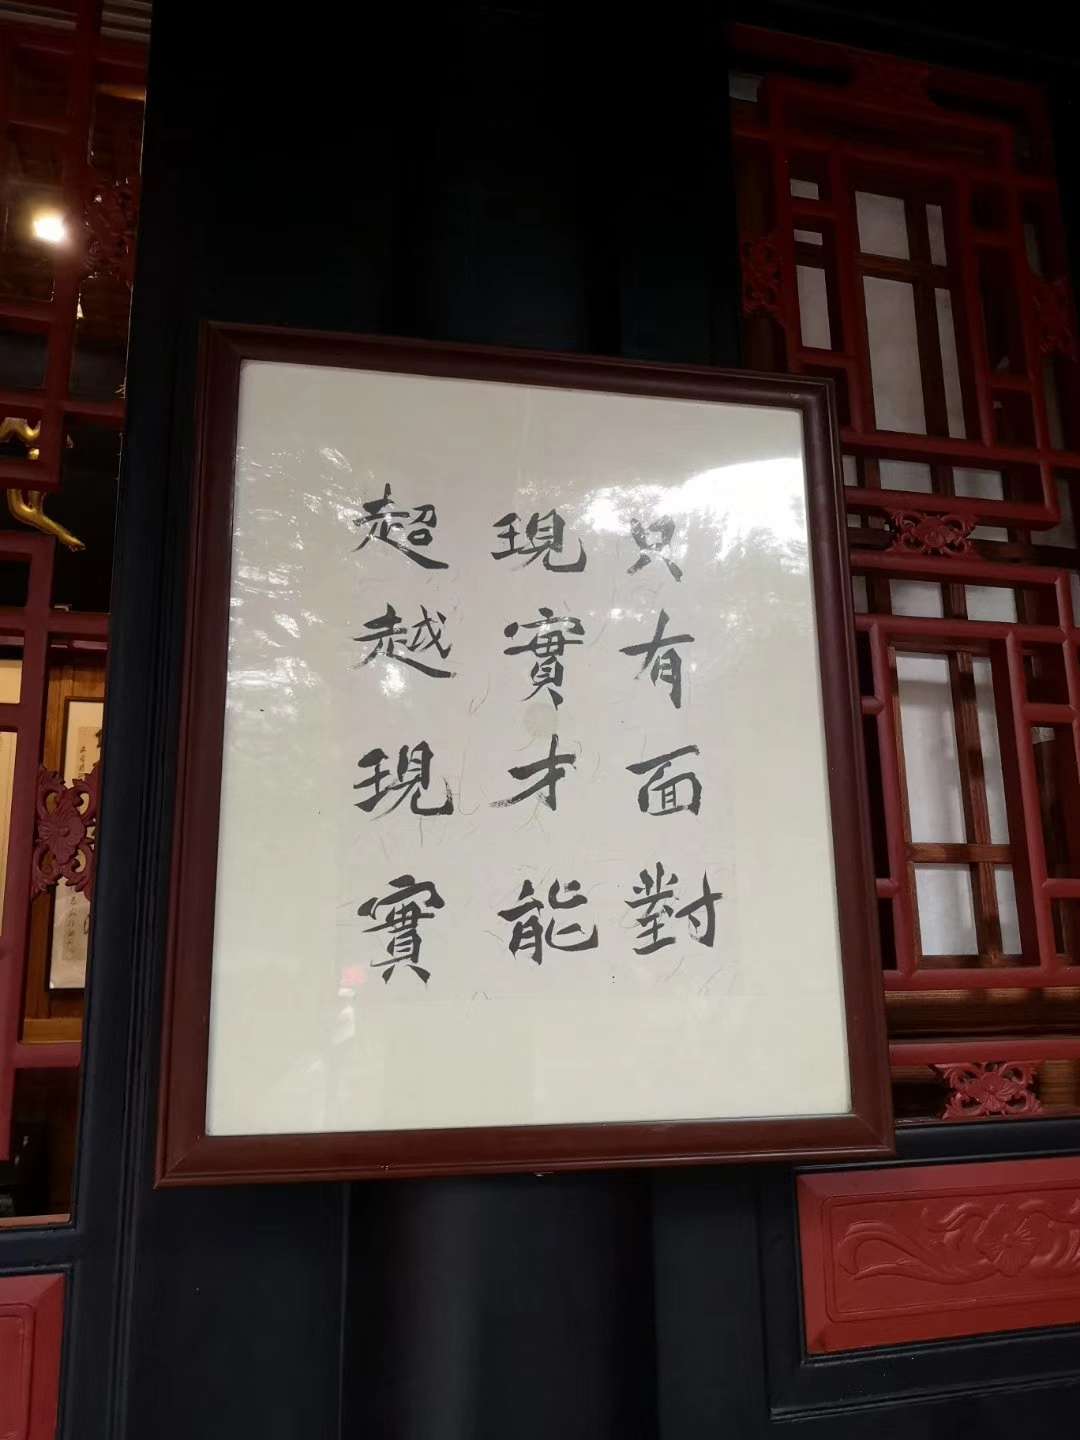 只有面對
現實才能
超越現實